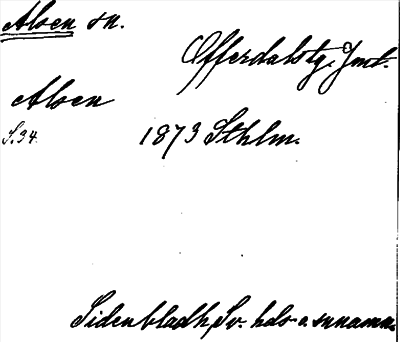 Alsen sn.
Offerdals tg. Jmt.
Alsen
S. 34 1873 Sthlm.
Sidenbladh, Sv. hds- o. snnamn.